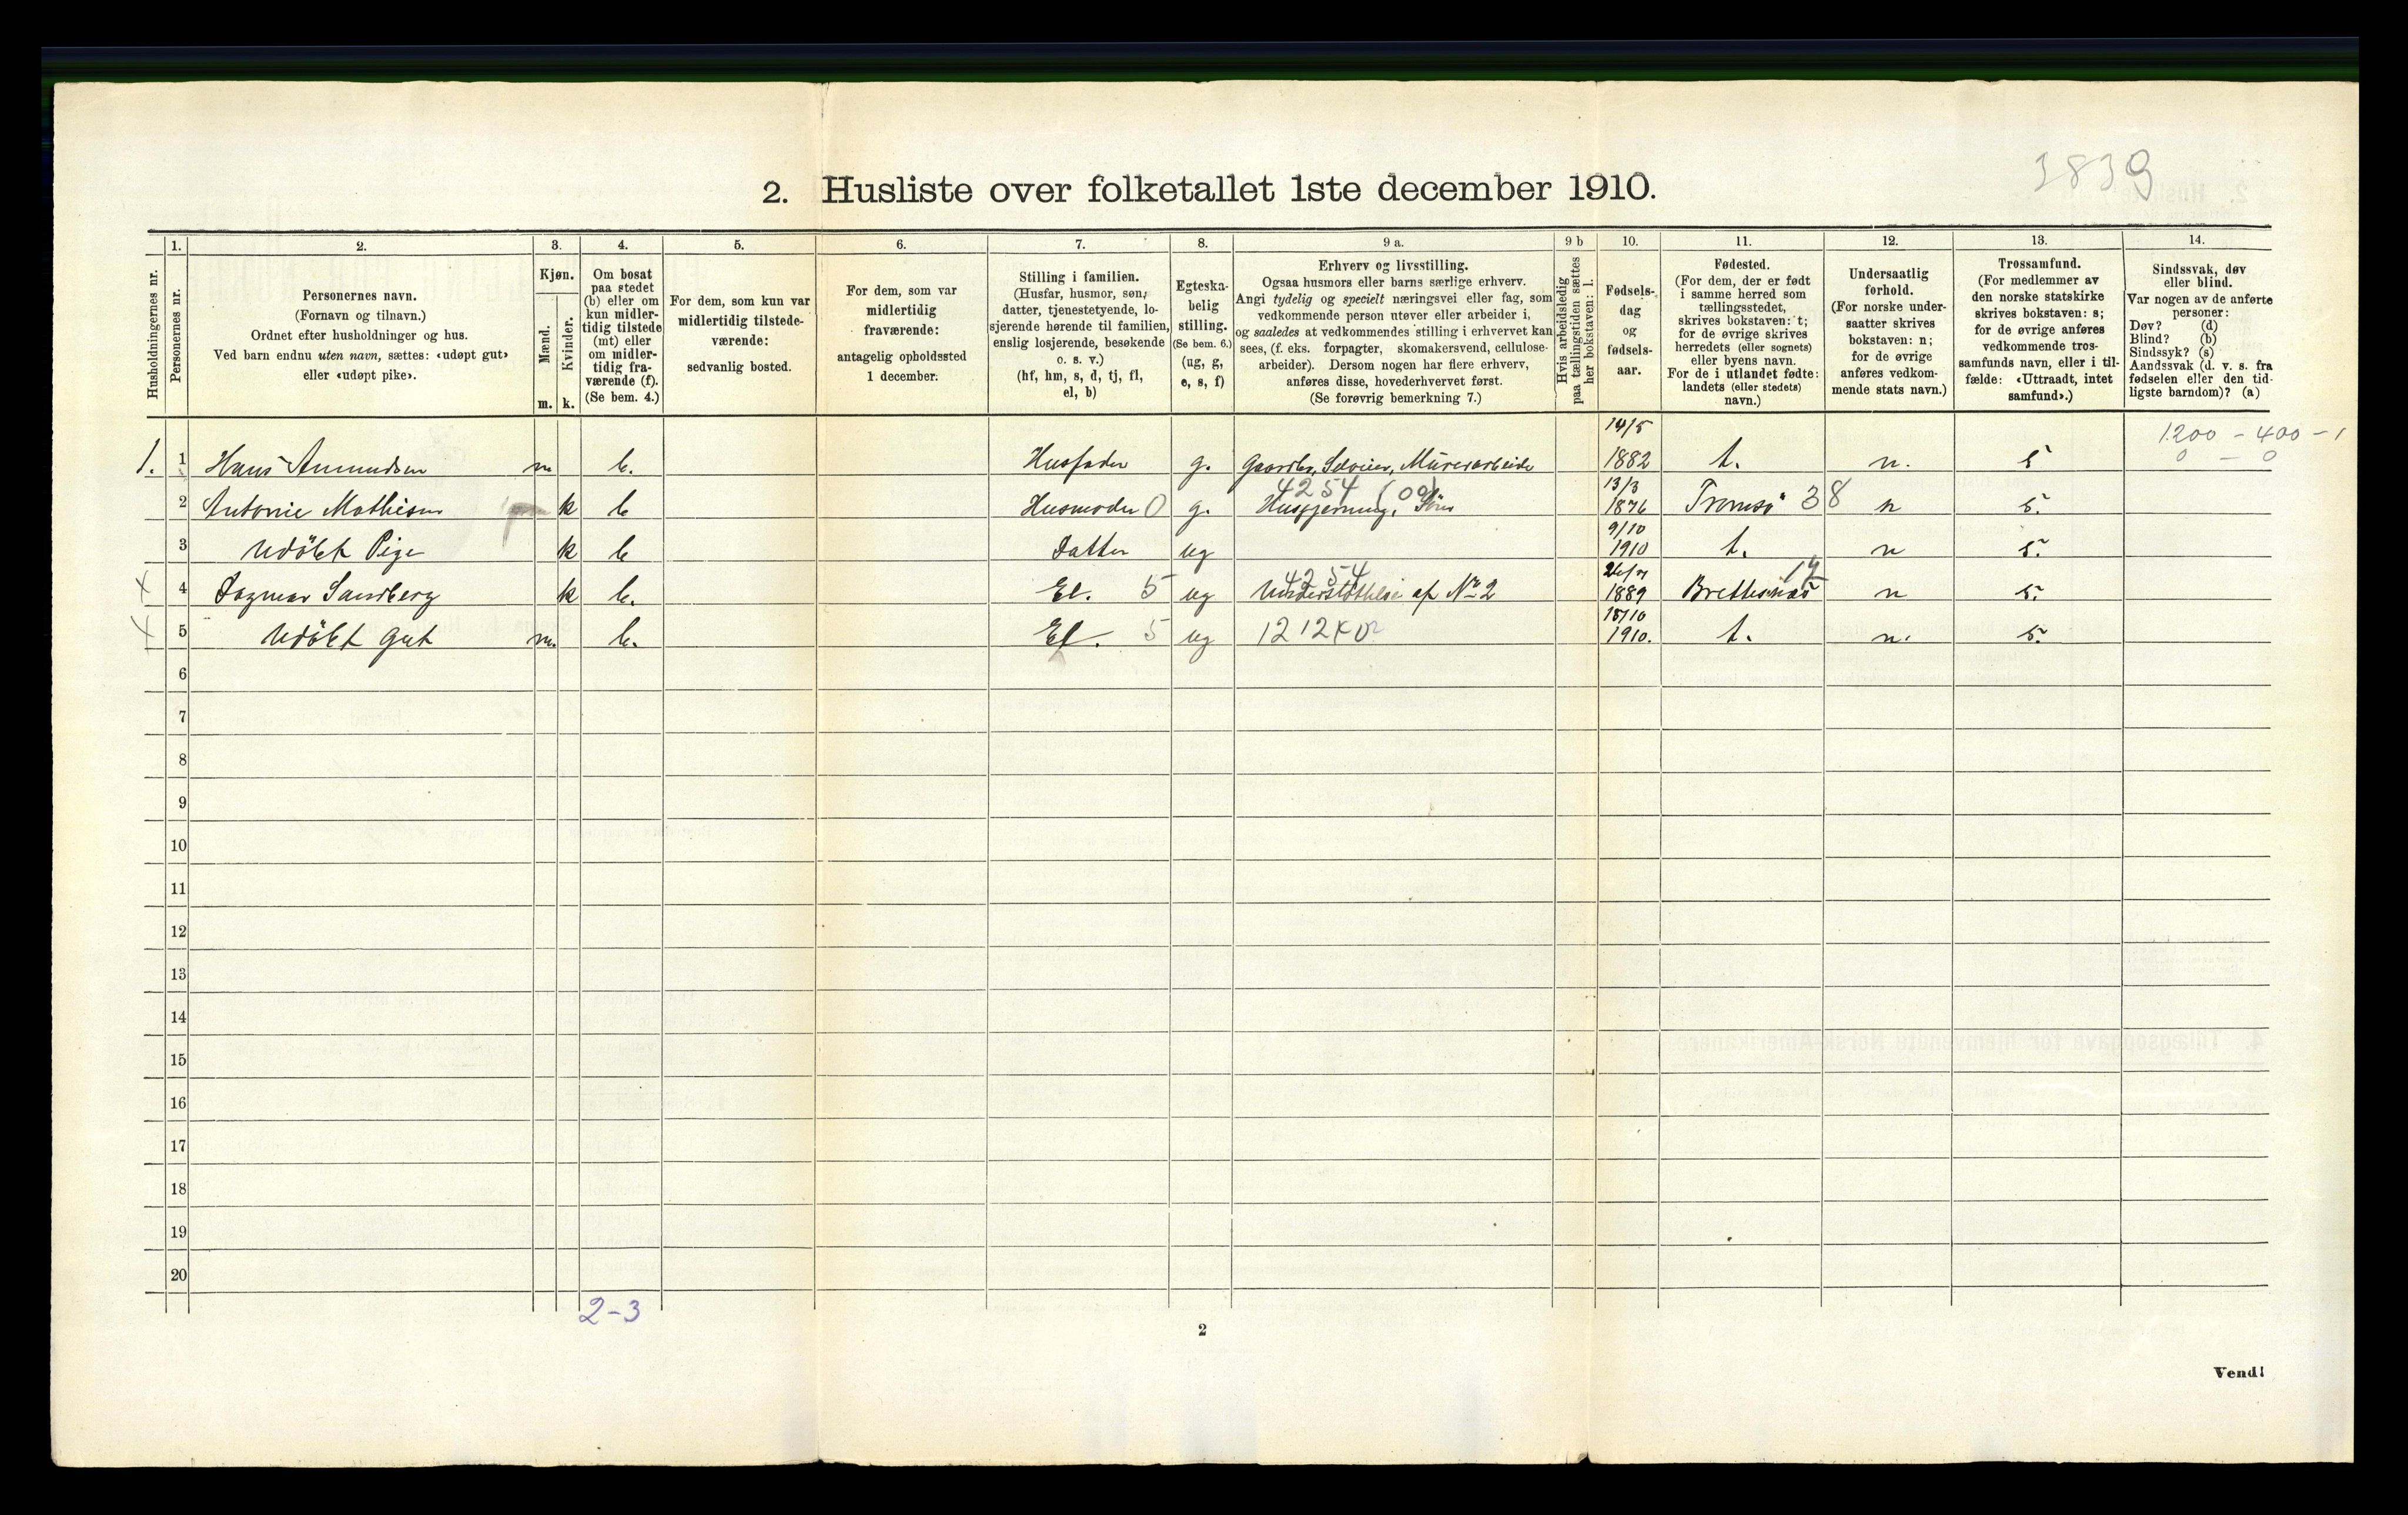 3839
2. Husliste over folketallet 1ste december 1910.
Husholdningernes nr.
1.
Personernes nr.
2.
Personernes navn.
(Fornavn og tilnavn.)
Ordnet efter husholdninger og hus.
Ved barn endnu uten navn, sættes: «udøpt gut»
eller «udøpt pike».
3.
Kjøn.
Mænd.
m.
Kvinder.
k.
4.
Om bosat
paa stedet
(b) eller om
kun midler-
tidig tilstede
(mt) eller
om midler-
tidig fra-
værende (f).
(Se bem. 4.)
5.
For dem, som kun var
midlertidig tilstede-
værende:
sedvanlig bosted.
6.
For dem, som var
midlertidig
fraværende:
antagelig opholdssted
1 december.
7.
Stilling i familien.
(Husfar, husmor, søn,
datter, tjenestetyende, lo-
sjerende hørende til familien,
enslig losjerende, besøkende
o. s. v.)
(hf, hm, s, d, tj, fl,
el, b)
8.
Egteska-
belig
stilling.
(Se bem. 6.)
(ug, g,
e, s, f)
9 a.
Erhverv og livsstilling.
Ogsaa husmors eller barns særlige erhverv.
Angi tydelig og specielt næringsvei eller fag, som
vedkommende person utøver eller arbeider i,
og saaledes at vedkommendes stilling i erhvervet kan
sees, (f. eks. forpagter, skomakersvend, cellulose-
arbeider). Dersom nogen har flere erhverv,
anføres disse, hovederhvervet først.
(Se forøvrig bemerkning 7.)
9 b
Hvis arbeidsledig
paa tællingstiden sættes
her bokstaven: l.
10.
Fødsels-
dag
og
fødsels-
aar.
11.
Fødested.
(For dem, der er født
i samme herred som
tællingsstedet,
skrives bokstaven: t;
for de øvrige skrives
herredets (eller sognets)
eller byens navn.
For de i utlandet fødte:
landets (eller stedets)
navn.)
12.
Undersaatlig
forhold.
(For norske under-
saatter skrives
bokstaven: n;
for de øvrige
anføres vedkom-
mende stats navn.)
13.
Trossamfund.
(For medlemmer av
den norske statskirke
skrives bokstaven: s;
for de øvrige anføres
vedkommende tros-
samfunds navn, eller i til-
fælde: «Uttraadt, intet
samfund».)
14.
Sindssvak, døv
eller blind.
Var nogen av de anførte
personer:
Døv? (d)
Blind? (b)
Sindssyk? (s)
Aandssvak (d. v. s. fra
fødselen eller den tid-
ligste barndom)? (a)
1200 - 400 - 1
0 - 0
1. 1 Hans Amundsen m b. Husfader g. Gaardbr, Selveier, Murerarbeide 14/5 1882 t. n. s
4254 (00)
2 Antonie Mathisen k b Husmoder 0 g. Husgjerning, 13/3 1876 Tromsö 38 n s.
3 Udöbt Pige k b Datter ug 9/10 1910 t. n s.
4254
4 Dagmar Sandberg k b. El. 5 ug Understöttelse af No 2 1889 Brettesnæs 14 n s.
5 Udöbt Gut m. b. El. 5 ug 1212 18/10 1910. t. n. s.
6
7
8
9
10
11
12
13
14
15
16
17
18
19
20
2-3
2
Vend!